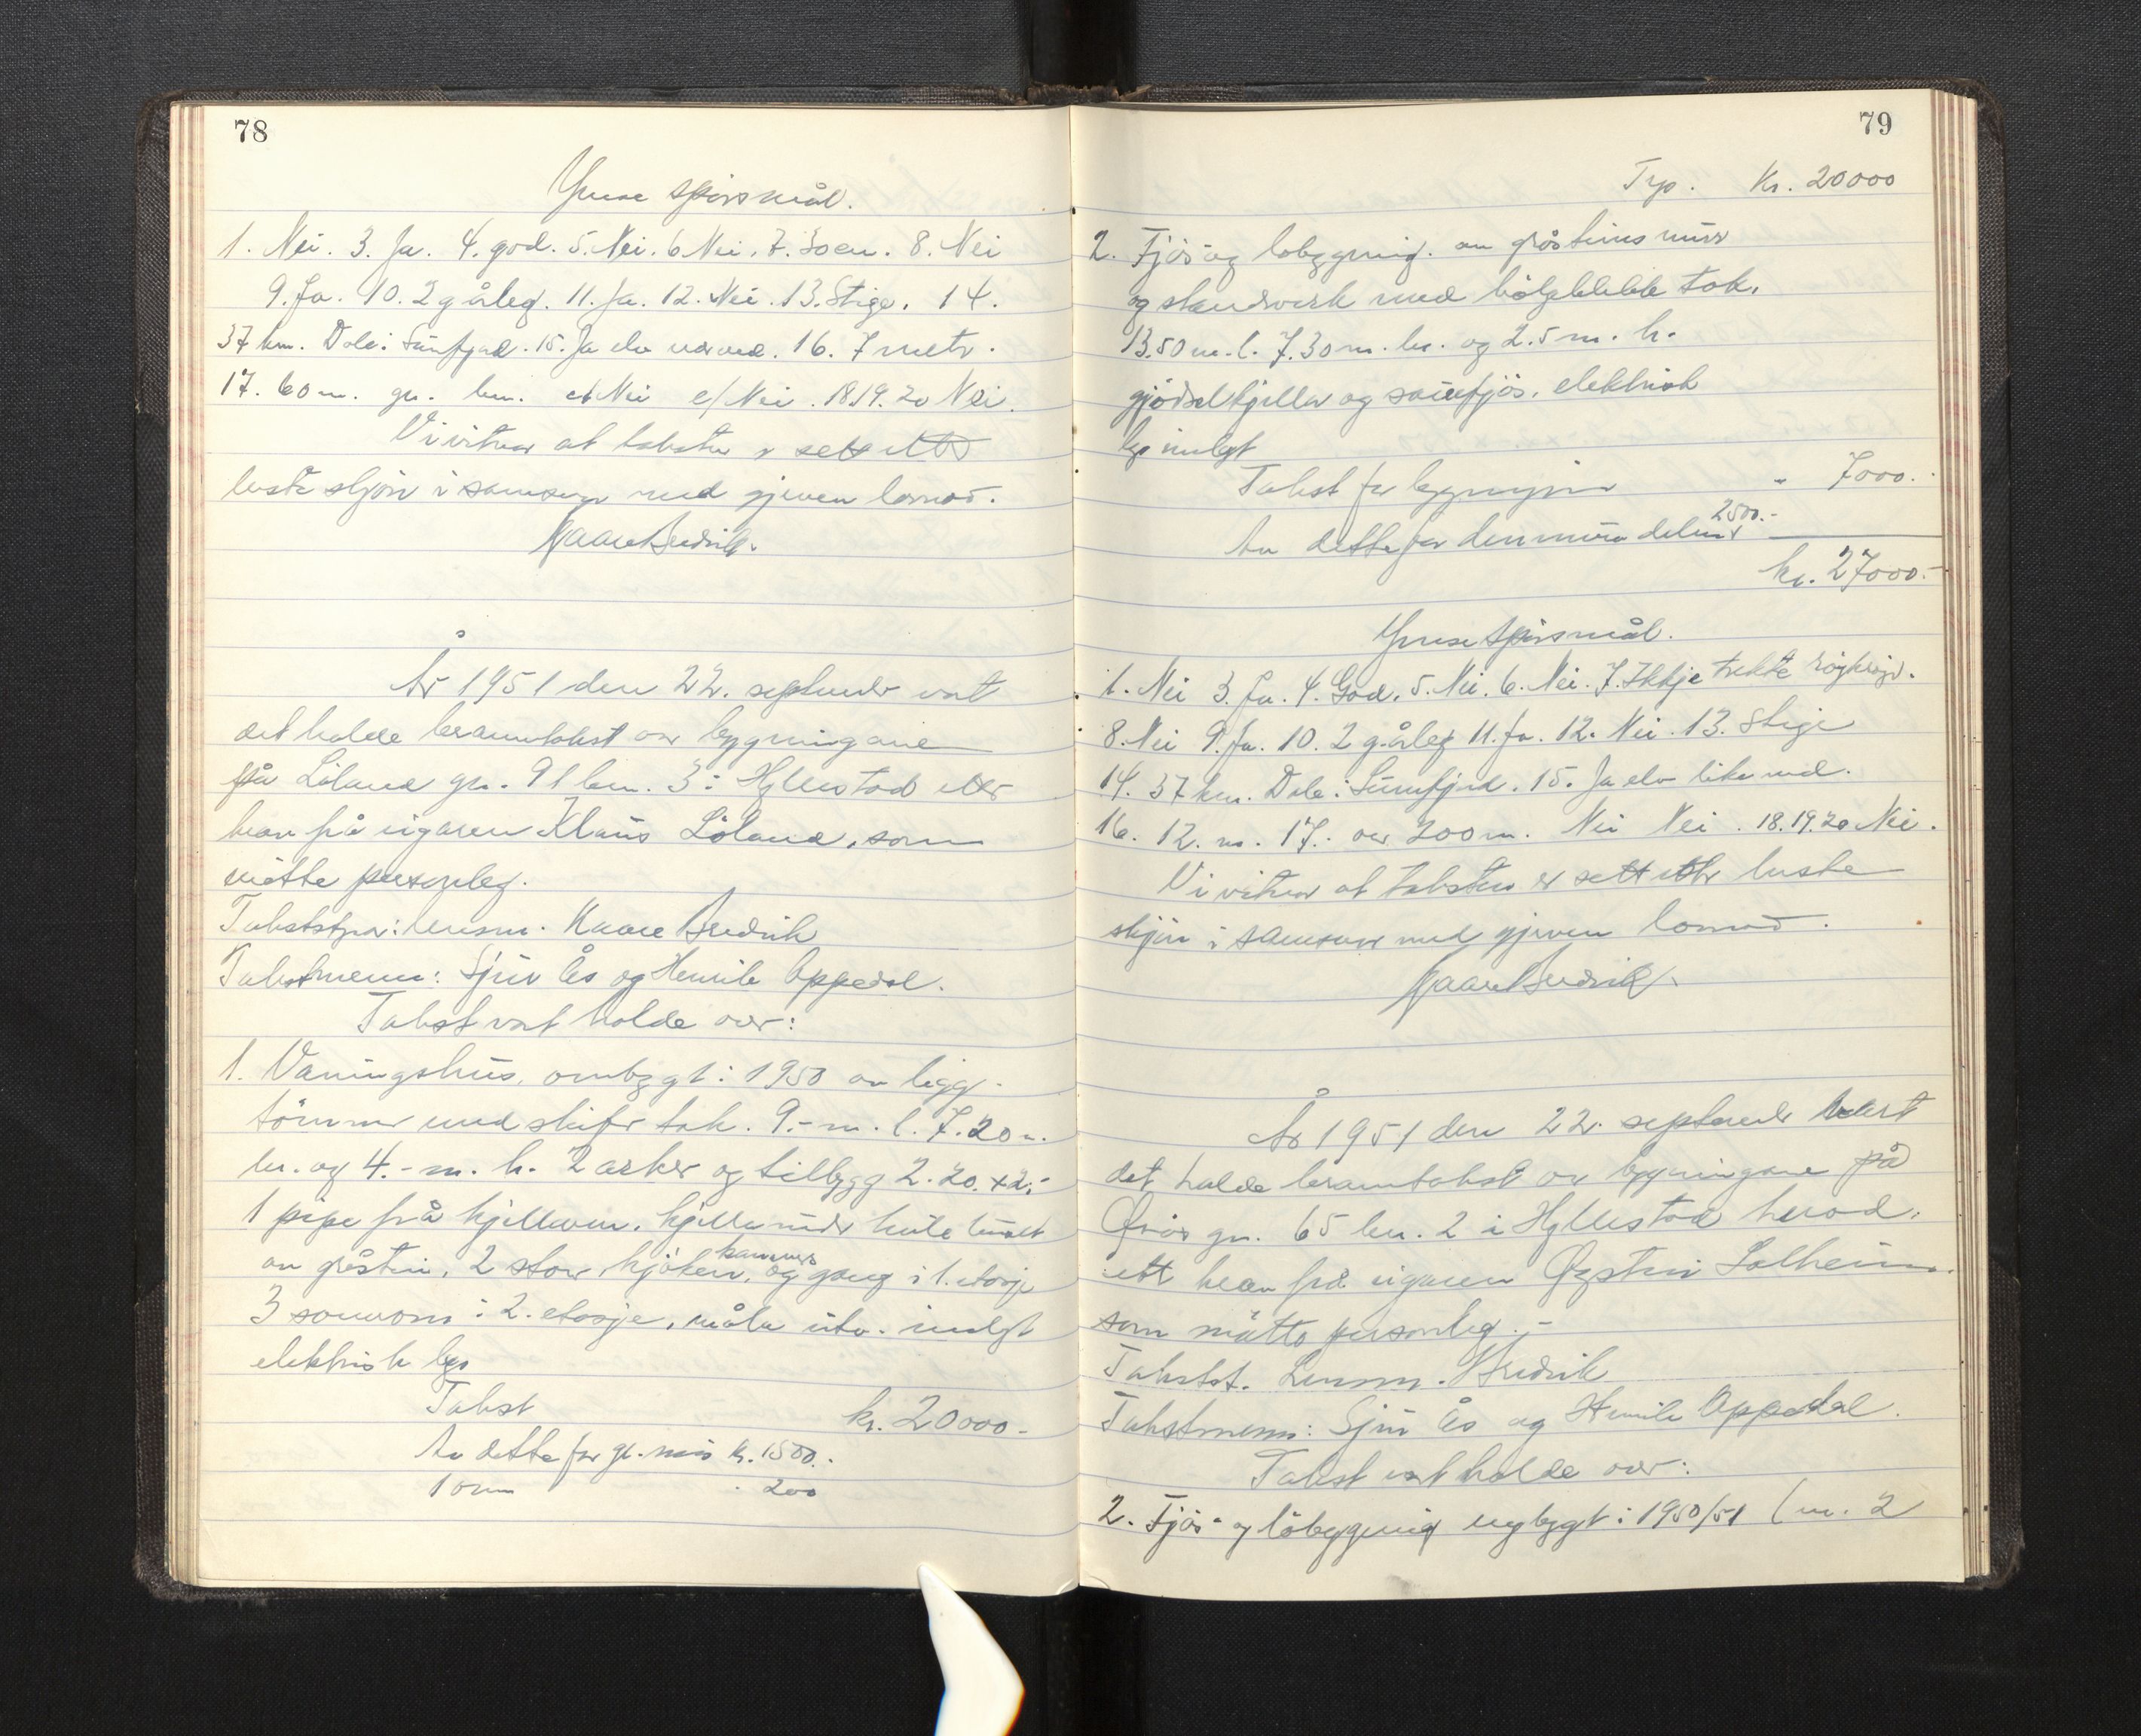 78
Ymse spörsmål.
1. Nei. 3. Ja. 4. god. 5. Nei. 6 Nei. 7. 30 cm. 8. Nei
9. Ja. 10. 2 g årleg. 11. Ja. 12. Nei. 13. Stige. 14.
37 km. Dale i Sunnfjord. 15. Ja elv ved. 16. 7 metr.
17. 60 m. Nei e/ Nei. 18. 19. 20 Nei.
Vi vitnar at taksten er sett etter
beste skjön i samsvar med gjeven lovnad.
Kaare Bredvik.
År 1951 den 22. september vart
det halde branntakst over bygningane
på Löland gn. 91 bn. 3 i Hyllestad etter
krav frå eigaren Klaus Löland, som
mötte personleg.
Takststyrar: lensm. Kaare Bredvik
Takstmenn: Sjur Ås og Henrik Oppedal.
Takst vart halde over:
1. Våningshus, ombygt i 1950 av ligg-
tömmer med skifer tak. 9.- m. l. 7.20 m.
br. og 4.- m. h. 2 arker og tilbygg 2.20 x 2.-
1 pipe frå kjellaren. kjellar under heile huset
av gråstein, 2 stover kjöken, kammers og gang i 1. etasje
3 soverom i 2. etasje, måla utv. innlagt
elektrisk lys
Takst kr. 20000.-
Av dette for gr. mur kr. 1500.-
1 omn " 200
79
Trp. Kr. 20000
2. Fjös og löbygning. av gråsteins mur
og standverk med bölgeblikk tak.
13.50 m. l. 7.30 m. br. og 2.5 m. h.
gjödselkjellar og sauefjös. elektrisk
lys innlagt
Takst for bygningen " 7000.-
Av dette for den mura delen 2500.-
kr. 27000.-
Ymse spörsmål.
1. Nei 3. Ja. 4. God. 5. Nei. 6. Nei. 7. Ikkje trekte röykröyr.
8. Nei 9. Ja. 10. 2 g. årleg 11. Ja. 12. Nei. 13. Stige
14. 37 km. Dale i Sunnfjord. 15. Ja elv like ved.
16. 12. m. 17. over 200 m. Nei Nei. 18. 19. 20 Nei.
Vi vitnar at taksten er sett etter beste
skjön i samsvar med gjeven lovnad.
Kaare Bredvik
År 1951 den 22. september vart
det halde branntakst over bygningane på
gn. 65 bn. 2 i Hyllestad herad.
ett krav frå eigaren Øystein Solheim.
som mötte personleg.-
Takstst. Lensm. Bredvik
Takstmenn: Sjur Ås og Henrik Oppedal.
Takst vart halde over:
2. Fjös- og löbygning nybygt i 1950/51 (nr. 2